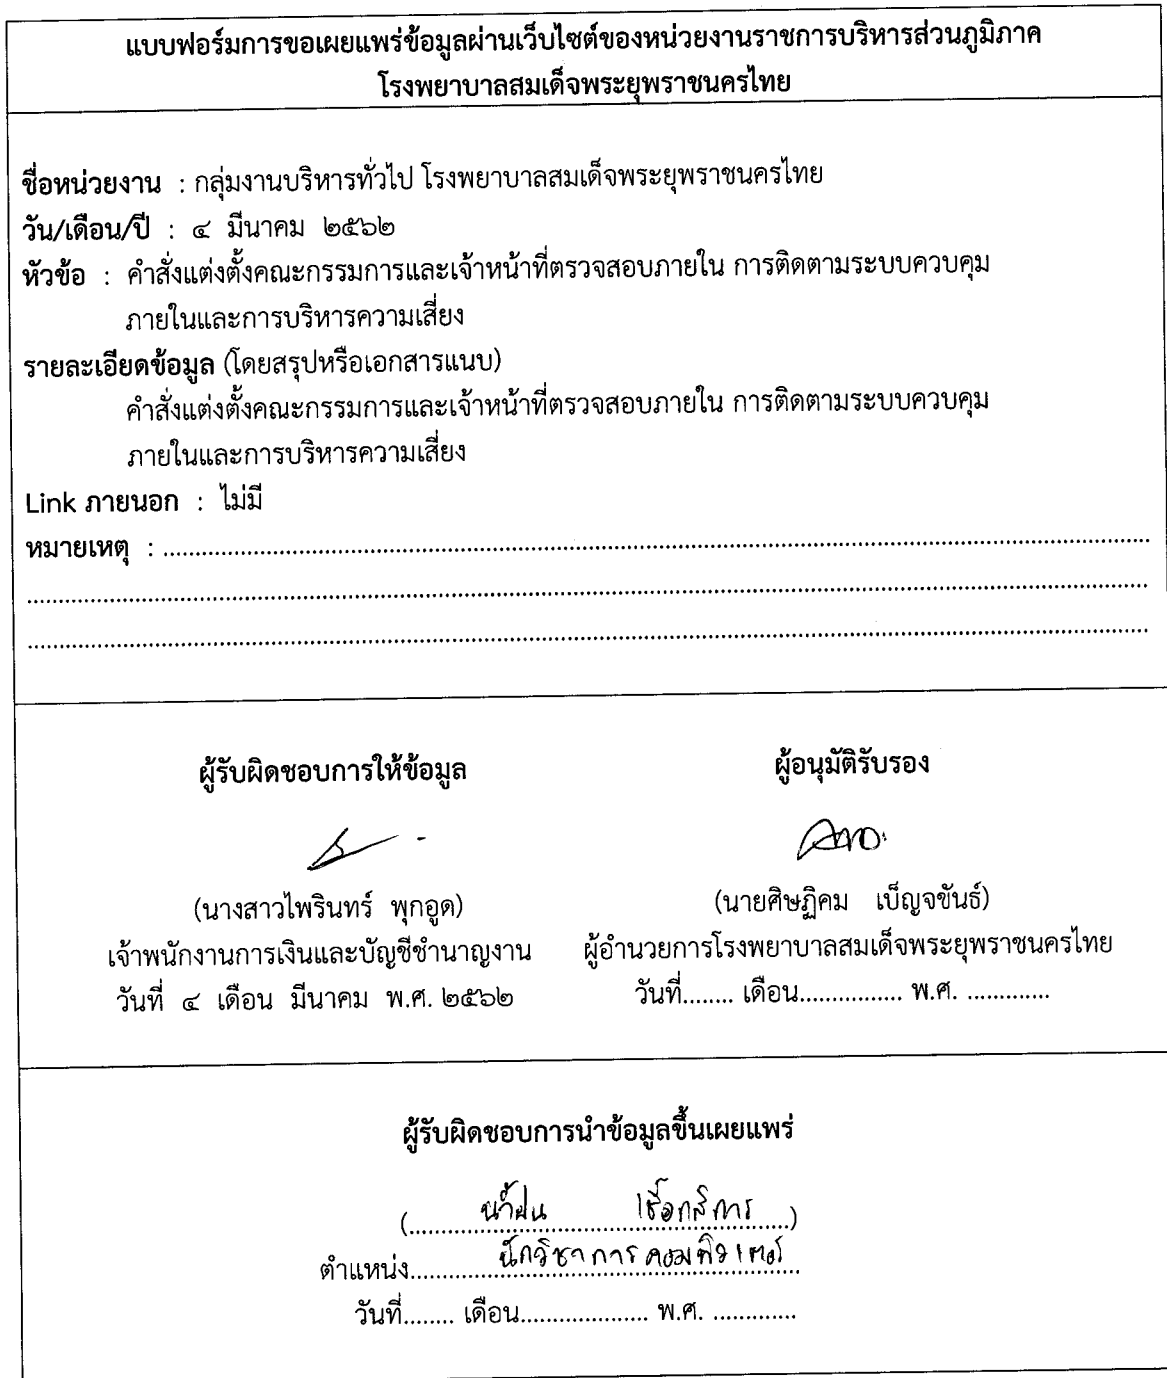 แบบฟอร์มการขอเผยแพร่ข้อมูลผ่านเว็บไซต์ของหน่วยงานราชการบริหารส่วนภูมิภาค
โรงพยาบาลสมเด็จพระยุพราชนครไทย
ชื่อหน่วยงาน : กลุ่มงานบริหารทั่วไป โรงพยาบาลสมเด็จพระยุพราชนครไทย
วัน/เดือน/ปี : ๔ มีนาคม ๒๕๖๒
หัวข้อ : คำสั่งแต่งตั้งคณะกรรมการและเจ้าหน้าที่ตรวจสอบภายใน การติดตามระบบควบคุม
ภายในและการบริหารความเสี่ยง
รายละเอียดข้อมูล (โดยสรุปหรือเอกสารแนบ)
คำสั่งแต่งตั้งคณะกรรมการและเจ้าหน้าที่ตรวจสอบภายใน การติดตามระบบควบคุม
ภายในและการบริหารความเสี่ยง
Link ภายนอก : ไม่มี
หมายเหตุ : ..........
ผู้รับผิดชอบการให้ข้อมูล
(นางสาวไพรินทร์ พุกอูด)
เจ้าพนักงานการเงินและบัญชีชำนาญงาน
วันที่ ๔ เดือน มีนาคม พ.ศ. ๒๕๖๒
ผู้อนุมัติรับรอง
(นายศิษฏิคม เบ็ญจขันธ์)
ผู้อำนวยการโรงพยาบาลสมเด็จพระยุพราชนครไทย
วันที่........ เดือน................ พ.ศ. .............
ผู้รับผิดชอบการนำข้อมูลขึ้นเผยแพร่
(น้ำฝน)
ตำแหน่ง นักวิชาการคอมพิวเตอร์
วันที่........ เดือน.................... พ.ศ. .............